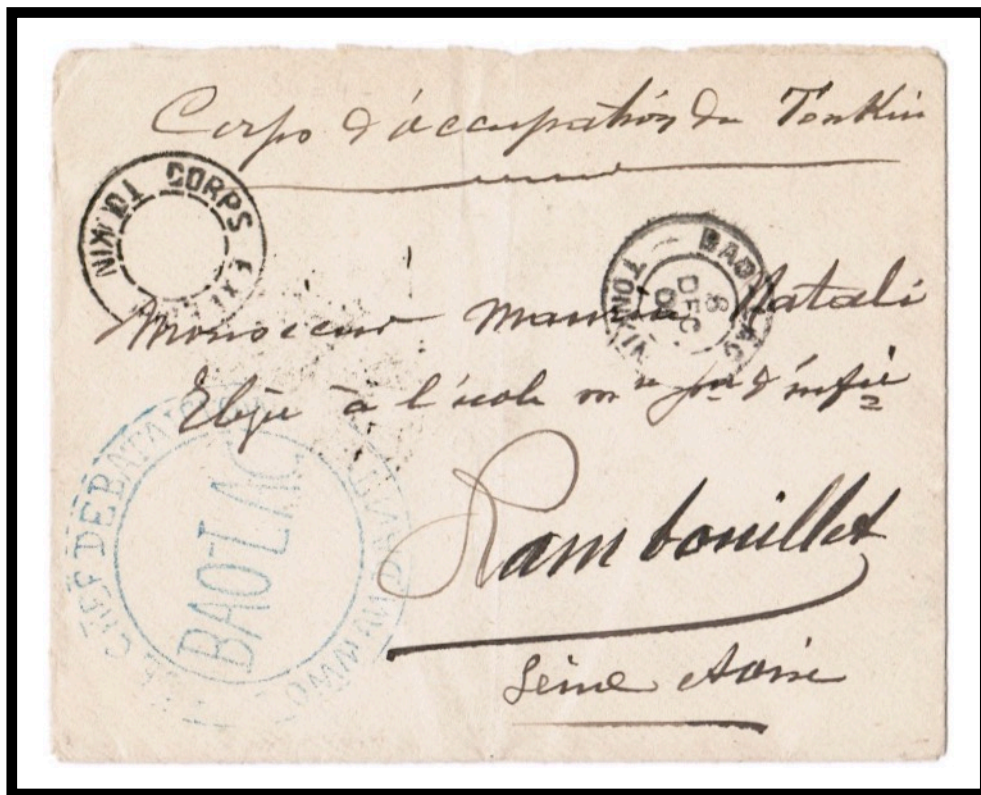 Corps d'occupation du Tonkin
CORPS EXP TONKIN
BAO LAC
6
DEC
TONKIN
Monsieur Natali
à l'école d'inf
Rambouillet
Seine et Oise
CHEF DE BATAILLON COMMANDANT
BAOLAC